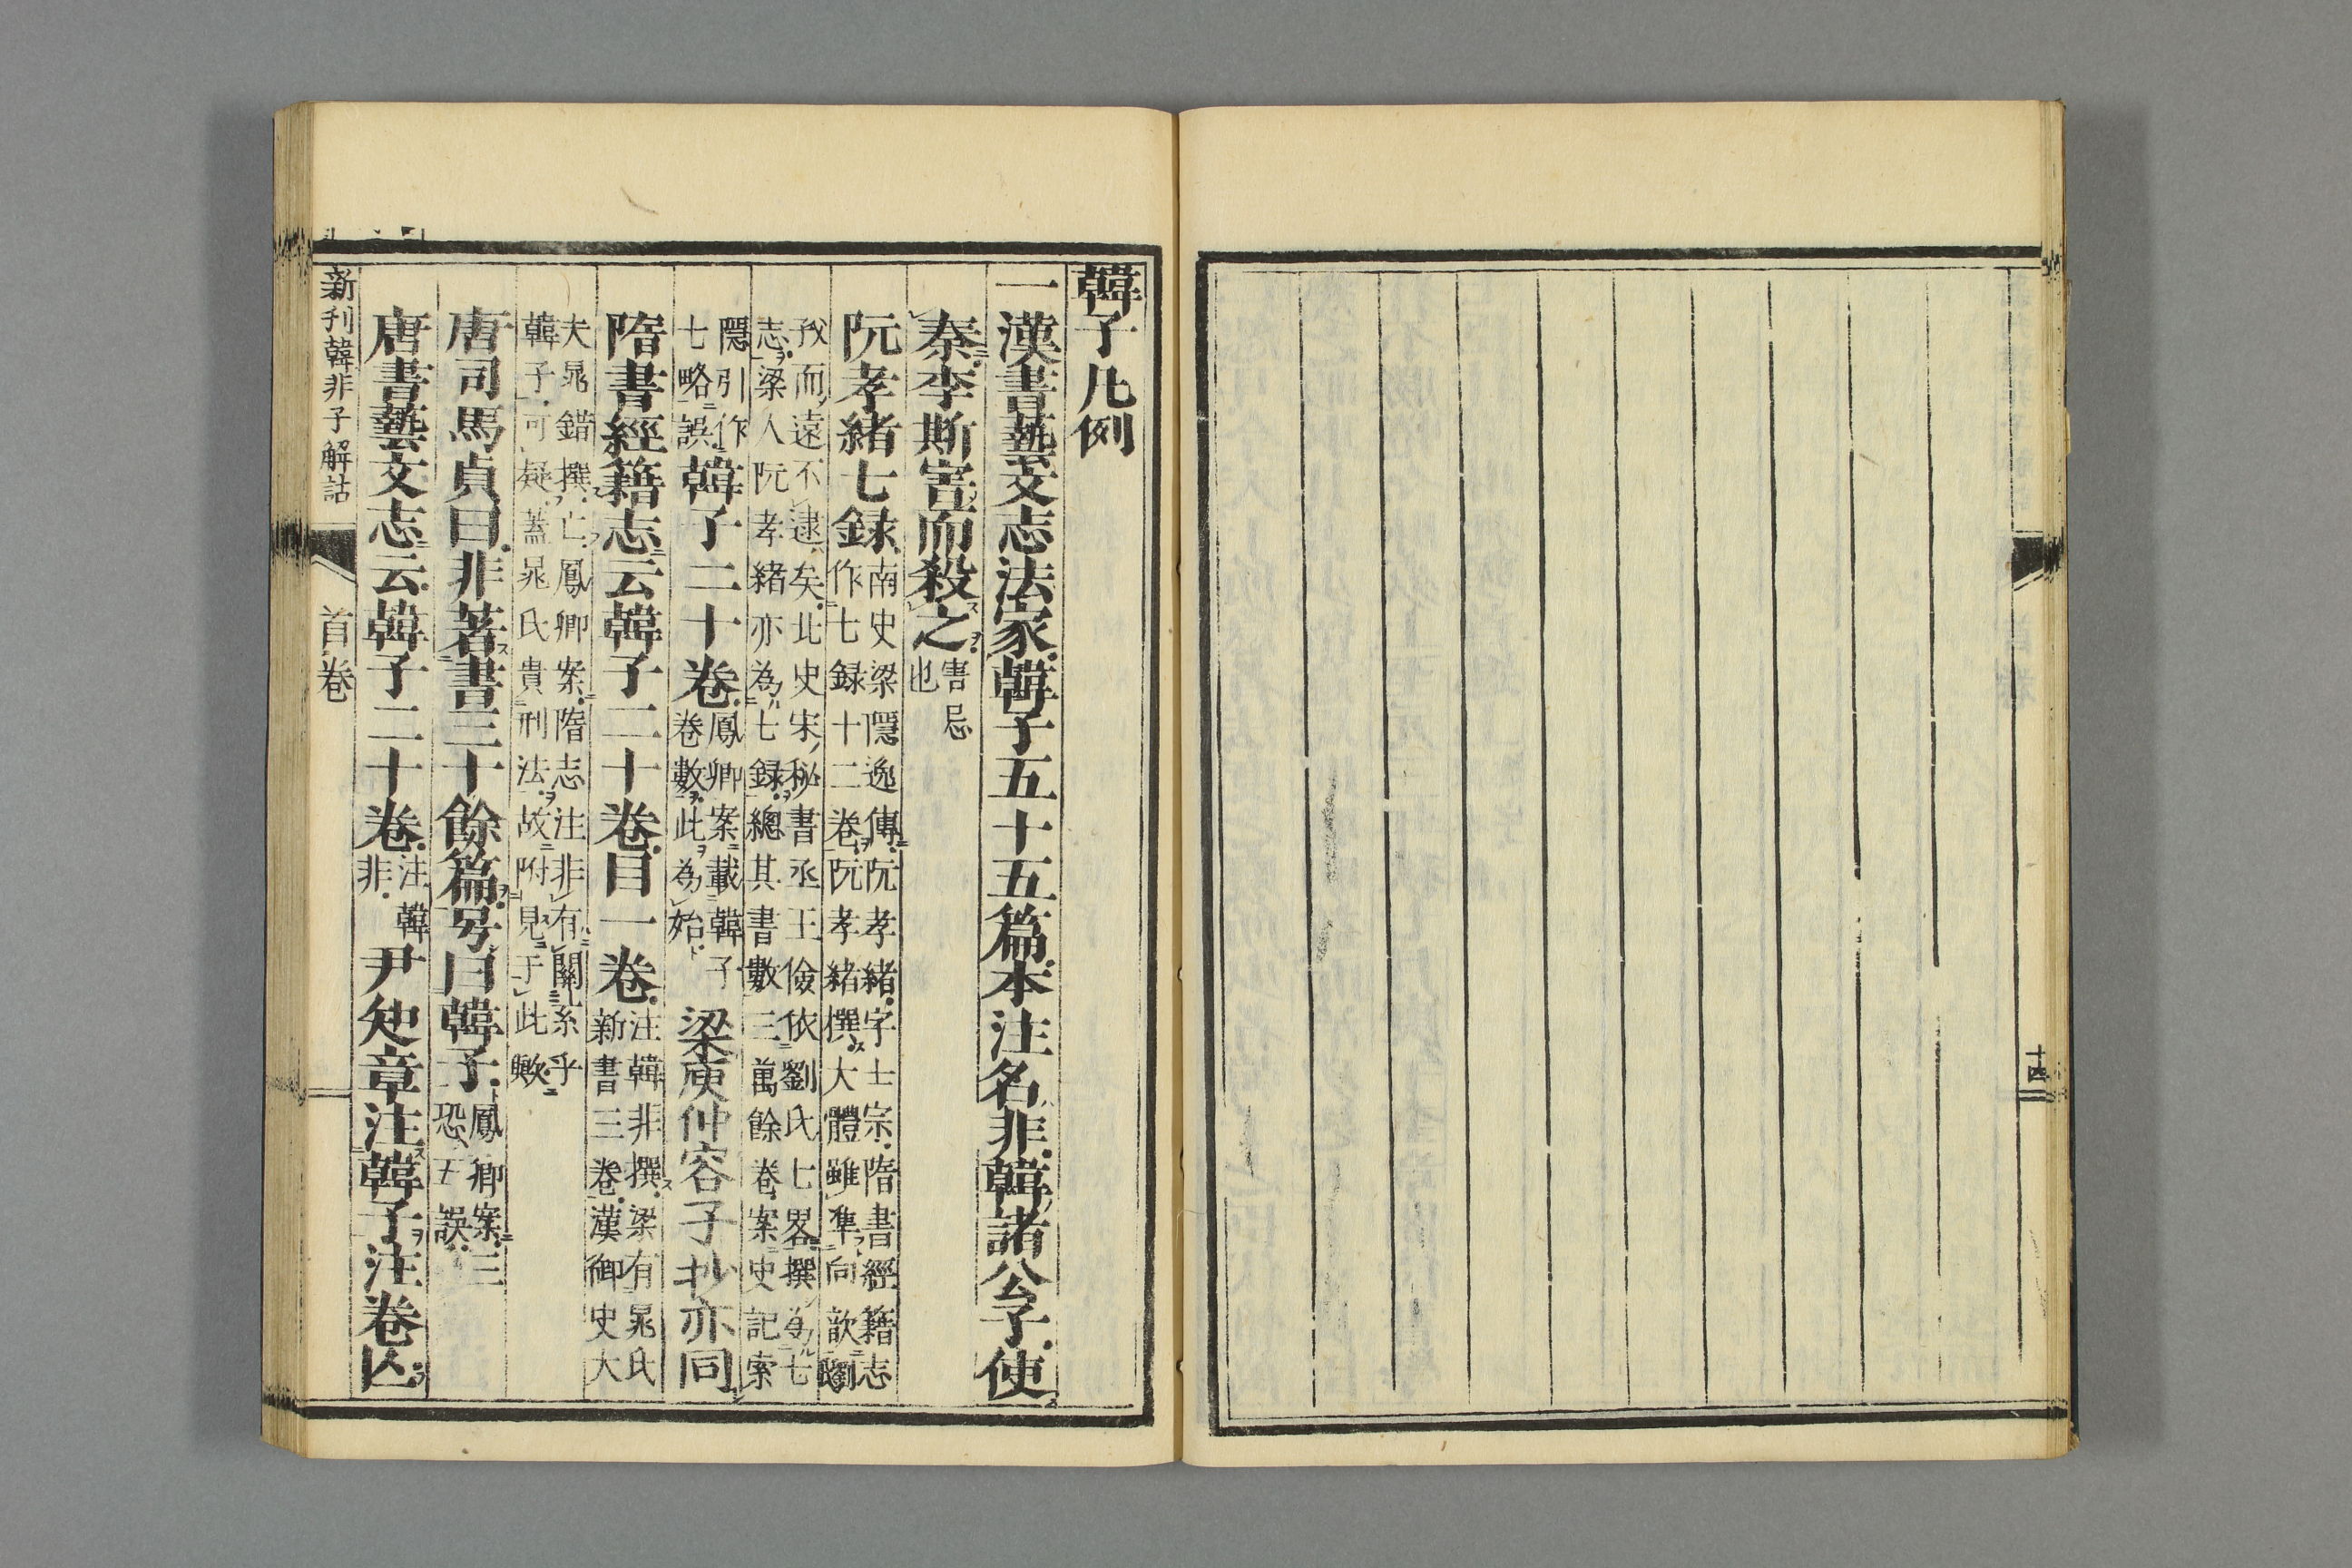 十四
韓子凡例
一漢書藝文志法家韓子五十五篇本注名非韓諸公子使
秦李斯害而殺之害忌也
阮孝緒七録南史梁隱逸傳阮孝緒字士宗隋書經籍志
作七録十二卷阮孝緒撰大體雖準向歆
而遠不逮矣北史宋秘書丞王儉依劉氏七畧撰為七
志梁人阮孝緒亦為七録總其書數三萬餘卷案史記索
隱引作七略誤韓子二十卷鳳卿案載韓子卷數此為始梁庾仲容子抄亦同
隋書經籍志云韓子二十卷目一卷注韓非撰梁有晁氏新書三卷漢御史大
夫晁錯撰亡鳳卿案隋志注非有關系乎
韓子可疑蓋晁氏貴刑法故附見于此歟
唐司馬貞曰非著書三十餘篇号曰韓子鳳卿案三恐五誤
唐書藝文志云韓子二十卷注韓非尹知章注韓子注卷亾
新刊韓非子解詁 首卷